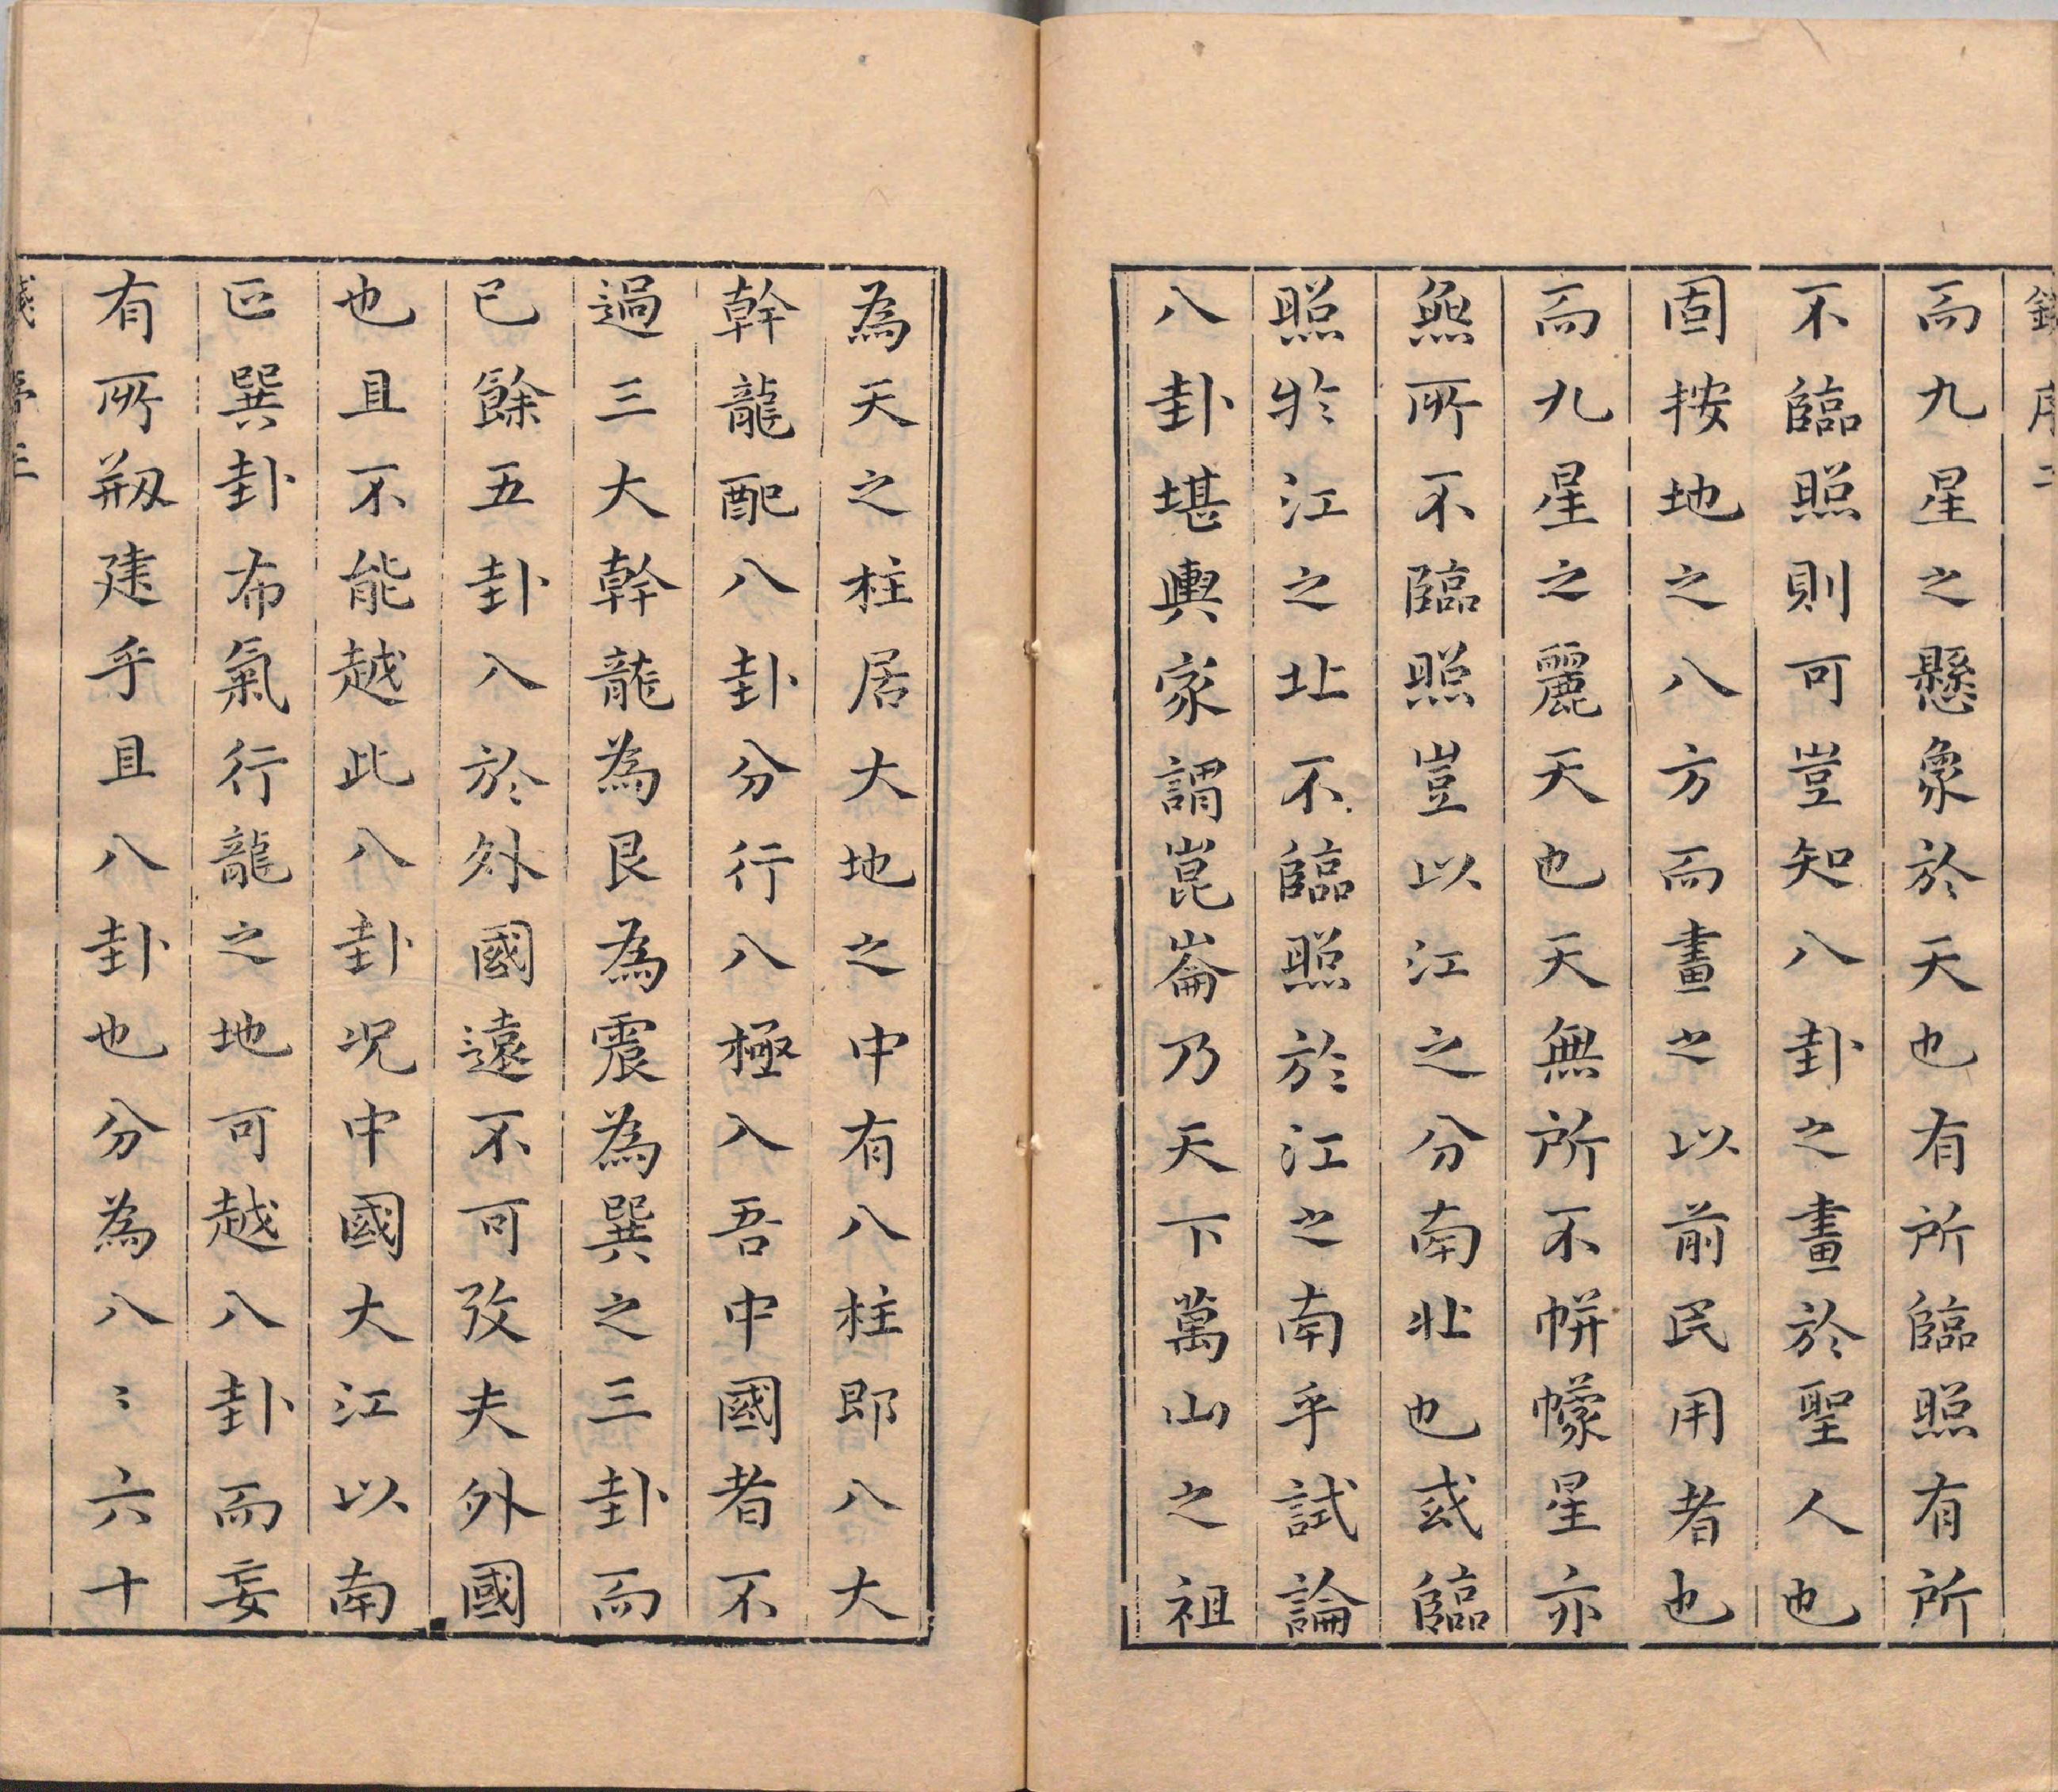 而九星之懸象於天也有所臨照有所
不臨照則可豈知八卦之畫於聖人也
固按地之八方而畫之以前民用者也
而九星之麗天也天無所不帡幪星亦
無所不臨照豈以江之分南北也或臨
照於江之北不臨照於江之南乎試論
八卦堪輿家謂崑崙乃天下萬山之祖
為天之柱居大地之中有八柱即八大
幹龍配八卦分行八極入吾中國者不
過三大幹龍為艮為震為巽之三卦而
已餘五卦入於外國遠不可攷夫外國
也且不能越此八卦况中國大江以南
正巽卦布氣行龍之地可越八卦而妄
有所剏建乎且八卦也分為八〻六十